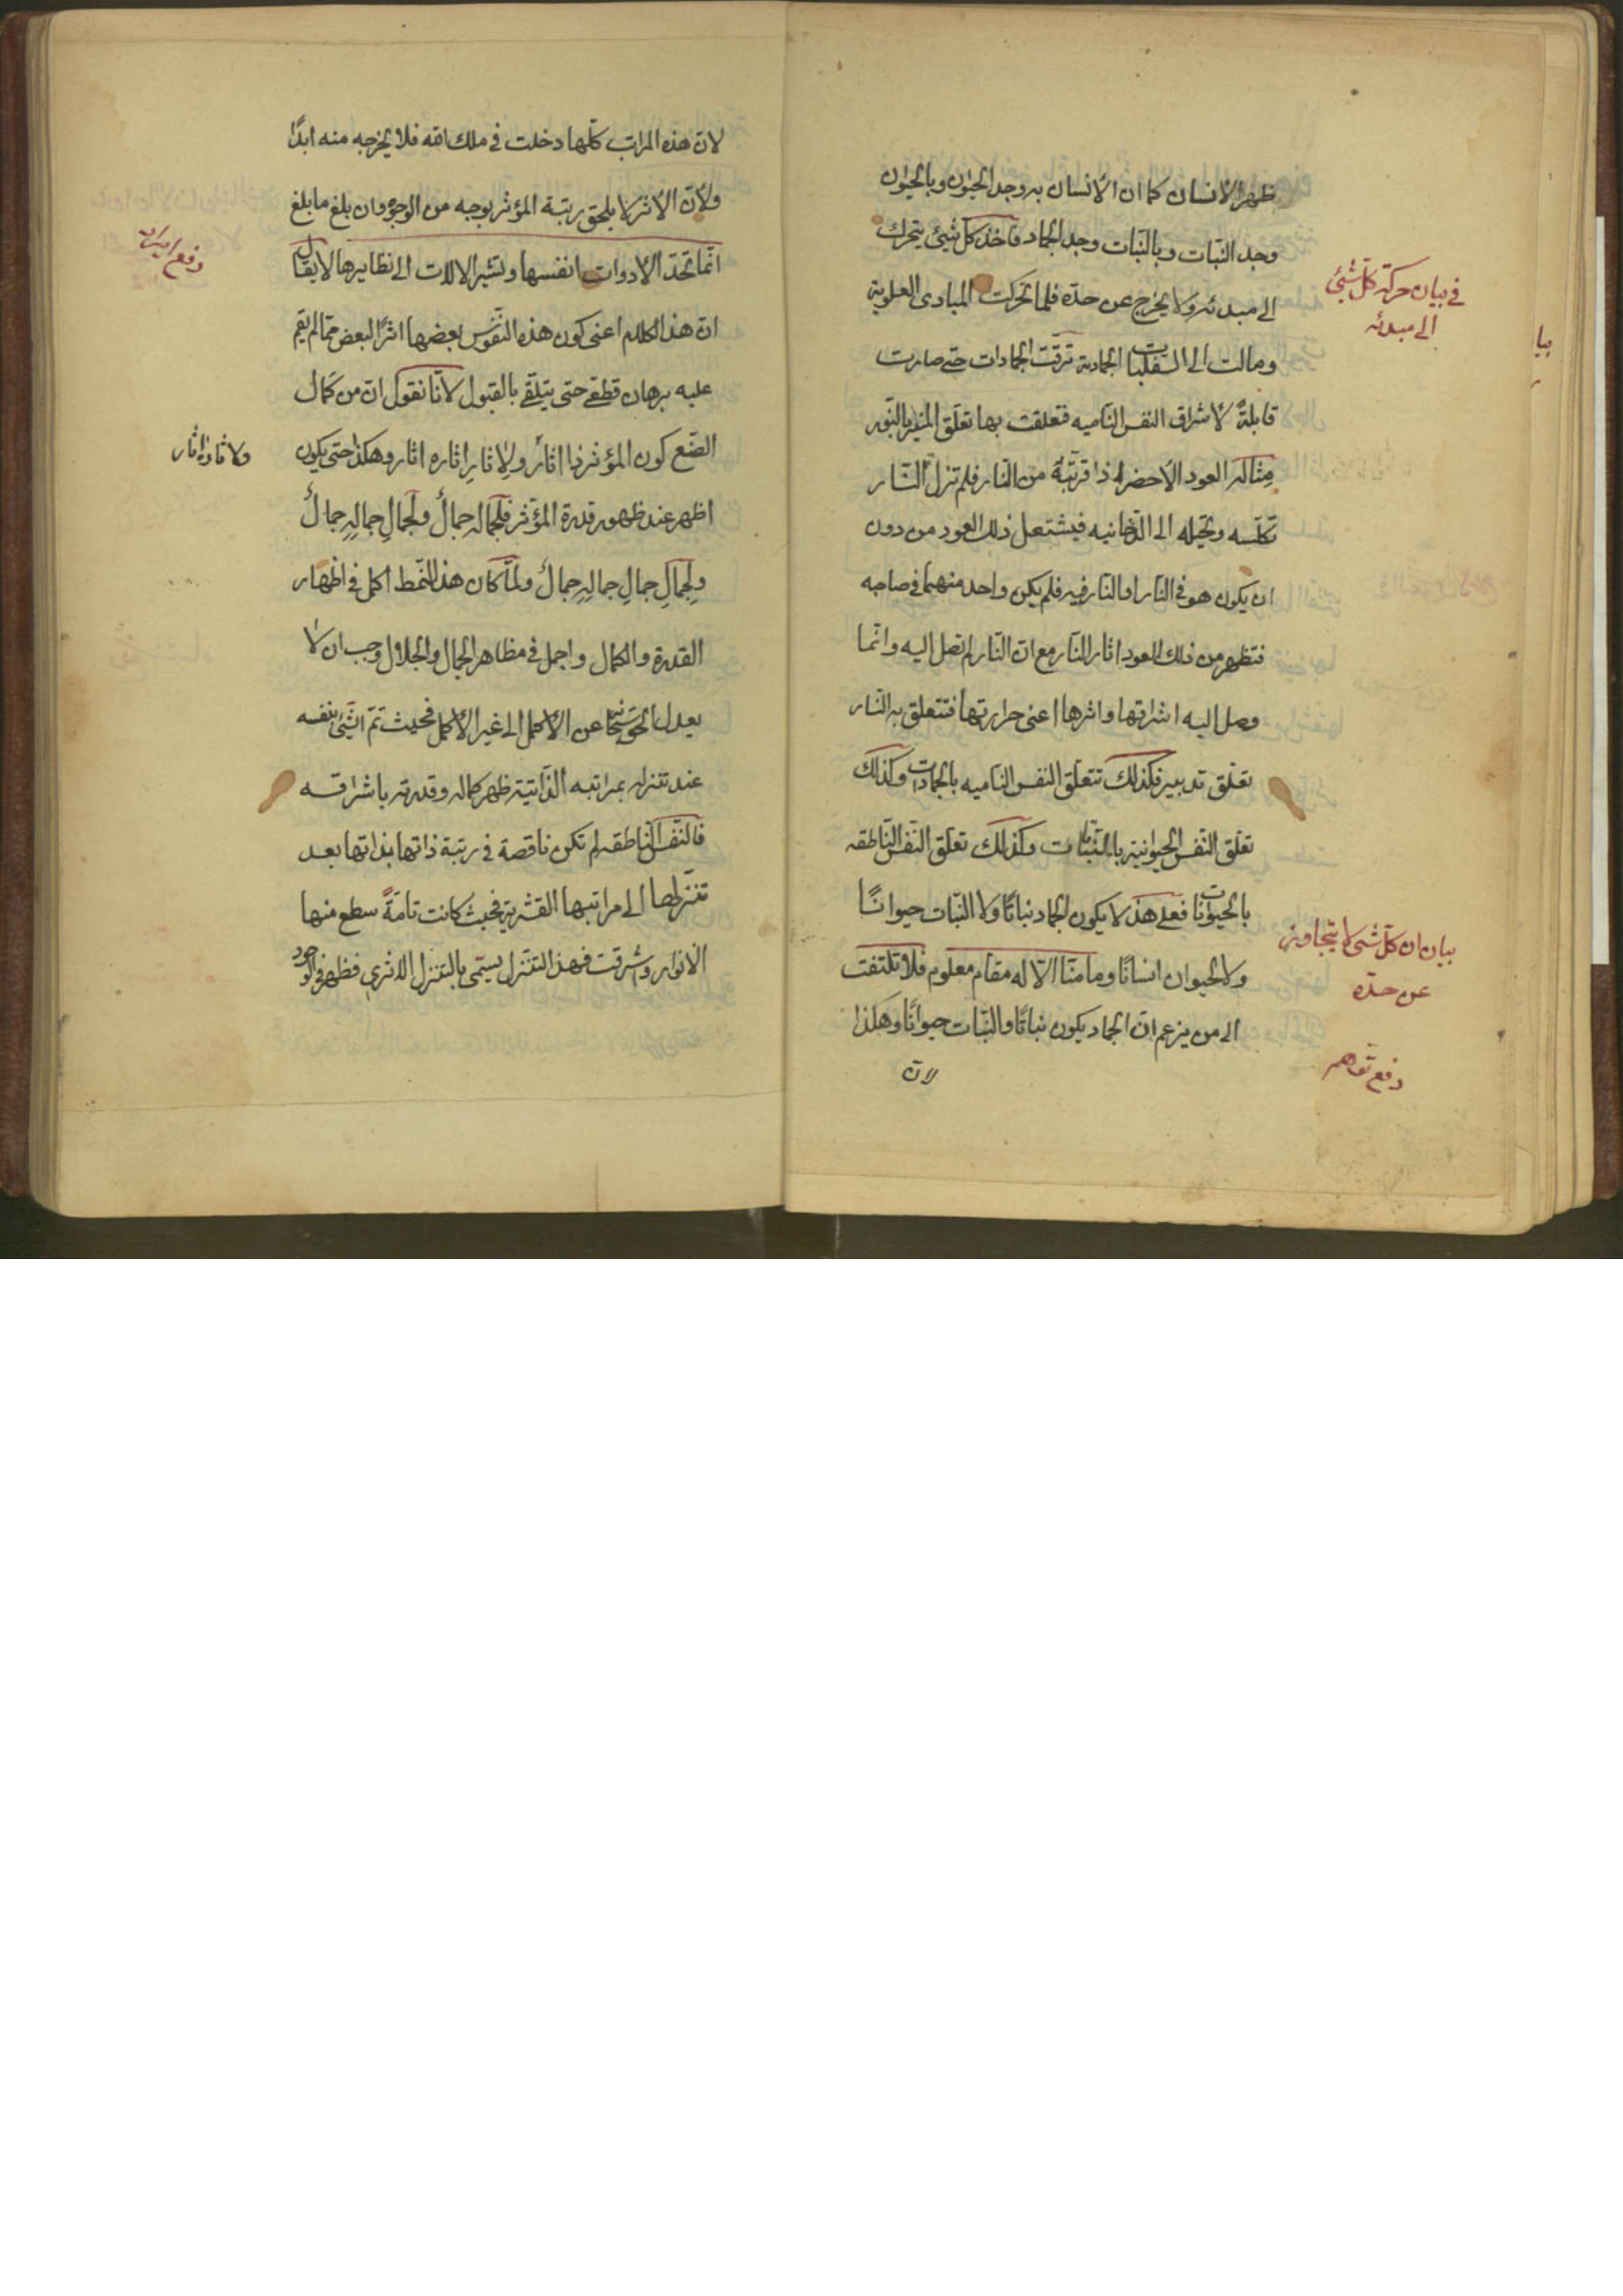 ظهر الأنسان كما ان الأنسان به وجد الحيوان وبالحيوان
وجد النبات وبالنبات وجد الجماد فاخذ كل شيئ يتحرك
الى مبدئه ولا يخرج عن حده فلما تحركت المبادى العلوية
ومالت الى السفليات الجمادية ترقت الجمادات حتى صارت
قابلةً لأشراق النفس الناميه فتعلقت بها تعلق المنير بالنور
مثاله العود الأخضر اذا قربته من النار فلم تزل النار
تكلسه وتحيله الى الدخانيه فيشتعل ذلك العود من دون
ان يكون هو فى النار او النار فيه فلم يكن واحد منهما فى صاحبه
فتظهر من ذلك العود اثار النار مع ان النار لم تصل اليه وانما
وصل اليه اشراقها واثرها اعنى حرارتها فتتعلق به النار
تعلق تدبير فكذلك تتعلق النفس الناميه بالجمادات وكذلك
تعلق النفس الحيوانية بالنباتات وكذلك تعلق النفس الناطقه
بالحيوانات فعلى هذا لا يكون الجماد نباتًا ولا النبات حيوانًا
ولا الحيوان انسانًا وما منّا الّا له مقام معلوم فلا تلتفت
الى من يزعم ان الجماد يكون نباتًا والنبات حيوانًا وهكذا
لان
فى بيان حركة كل شيئ
الى مبدئه
بيان ان كل شىء لا يتجاوز
عن حده
دفع توهم
لان هذه المراتب كلها دخلت فى ملك الله فلا يخرجه منه ابدًا
ولأن الأثر لا يلحق رتبة المؤثر بوجه من الوجوه وان بلغ ما بلغ
انما تحد الأدوات انفسها وتشير الالات الى نظايرها لا يقال
ان هذا الكلام اعنى كون هذه النفوس بعضها اثرًا لبعض مما لم يقم
عليه برهان قطعى حتى يتلقى بالقبول لأنا نقول ان من كمال
الصنع كون المؤثر ذا اثار ولاثار اثاره اثار وهكذا حتى يكون
اظهر عند ظهور قدرة المؤثر فلجماله جمالٌ ولجمالِ جمالهِ جمالٌ
ولجمالِ جمالِ جمالهِ جمالٌ ولما كان هذا النمط اكمل فى اظهار
القدرة والكمال واجمل فى مظاهر الجمال والجلال وجب ان لا
يعدل الحق سبحانه عن الأكمل الى غير الأكمل فحيث تم الشيئ بنفسه
عند تنزله بمراتبه الذاتية ظهر كماله وقدرته باشراقه
فالنفس الناطقه لم تكن ناقصة فى رتبة ذاتها بذاتها بعد
تنزلها الى مراتبها القشرية فحيث كانت تامةً سطع منها
الانوار واشرقت فهذا التنزل يسمى بالتنزل الاثرى فظهر فى الوجود
دفع ايراد